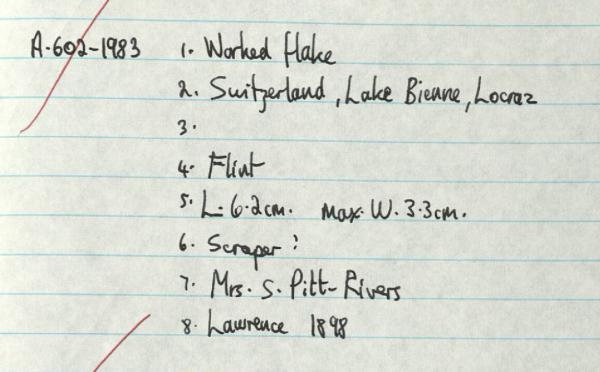 A.602-1983 1. Worked flake
2. Switzerland, Lake Bienne, Locraz
3.
4. Flint
5. L. 6.2cm. Max. W. 3.3cm.
6. Scraper?
7. Mrs. S. Pitt-Rivers
8. Lawrence 1898